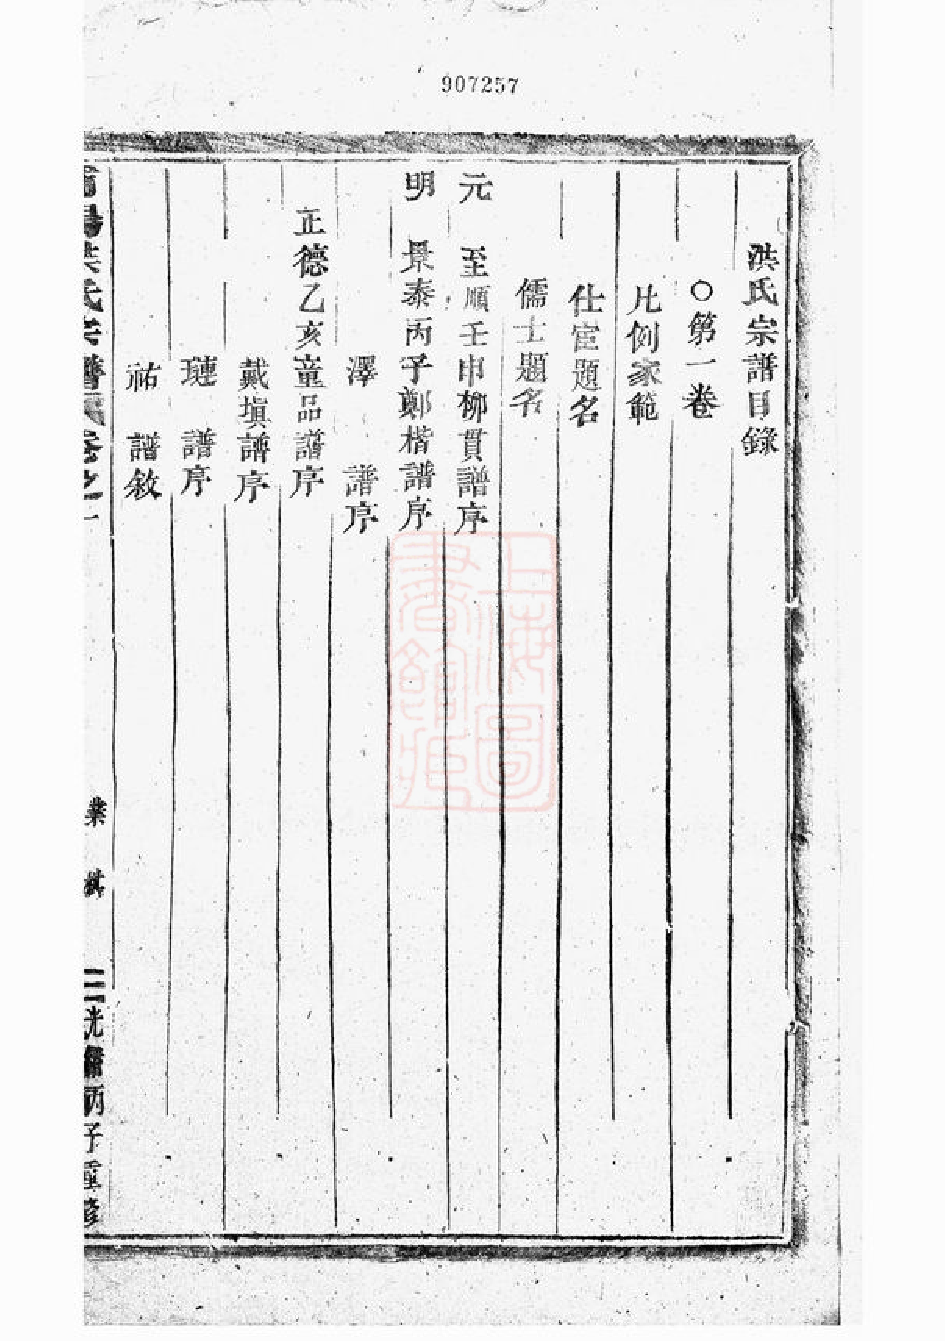 907257
洪氏宗譜目錄
○第一卷
凡例家範
仕宦題名
儒士題名
元 至順壬申柳貫譜序
明 景泰丙子鄭楷譜序
澤 譜序
正德乙亥童品譜序
戴塡譜序
璉 譜序
祐 譜敘
洪氏宗譜 卷之一
光緒丙子重修
上海圖書館藏